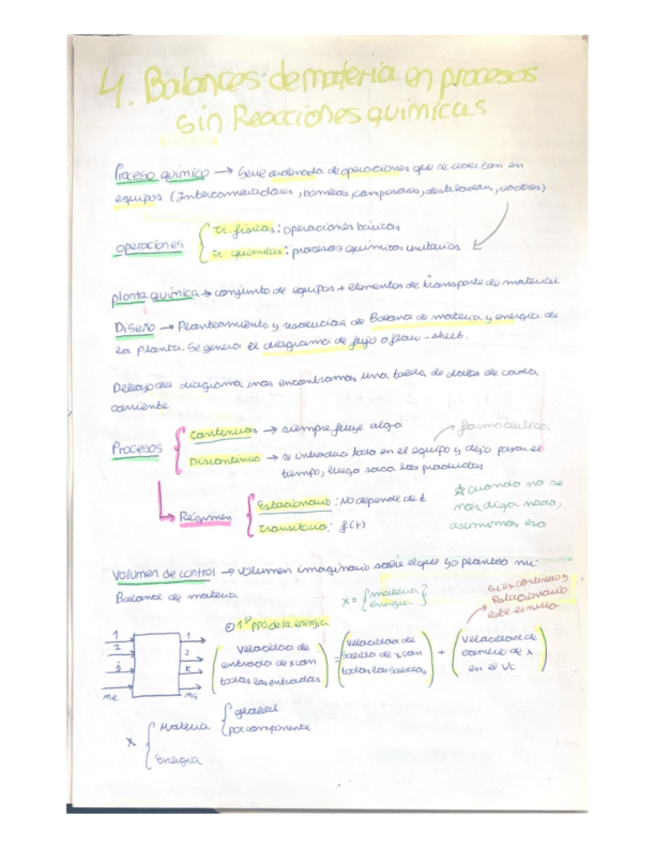 4. Balances de materia en procesos
sin Reacciones químicas
Proceso químico → Serie ordenada de operaciones que se realizan en
equipos (Intercambiadores, bombas, compresores, destiladores, reactores)
operaciones { tr. físicas: operaciones básicas
tr. químicas: procesos químicos unitarios
planta química → conjunto de equipos + elementos de transporte de material
Diseño → Planteamiento y resolución de Balance de materia y energía de
la planta. Se genera el diagrama de flujo o flow-sheet.
Debajo del diagrama, nos encontramos una tabla de datos de cada
corriente
Procesos { continuos → siempre fluye algo
Discontinuo → se introduce todo en el equipo y dejo pasar el
tiempo, luego saco los productos
farmacéutica
Régimen { Estacionario: No depende de t
Transitorio: f(t)
☆ cuando no se
nos diga nada,
asumimos eso
Volumen de control → volumen imaginario sobre el que yo planteo mi
Balance de materia
x = { materia
energía }
si es continuo y
Estacionario
este es nulo
1º ppo de la energía
( velocidad de
entrada de x con
todas las entradas ) = ( velocidad de
salida de x con
todas las salidas ) + ( velocidad de
cambio de x
en el VC )
1 1
2 2
j k
me ms
x { Materia { general
por componente
Energía